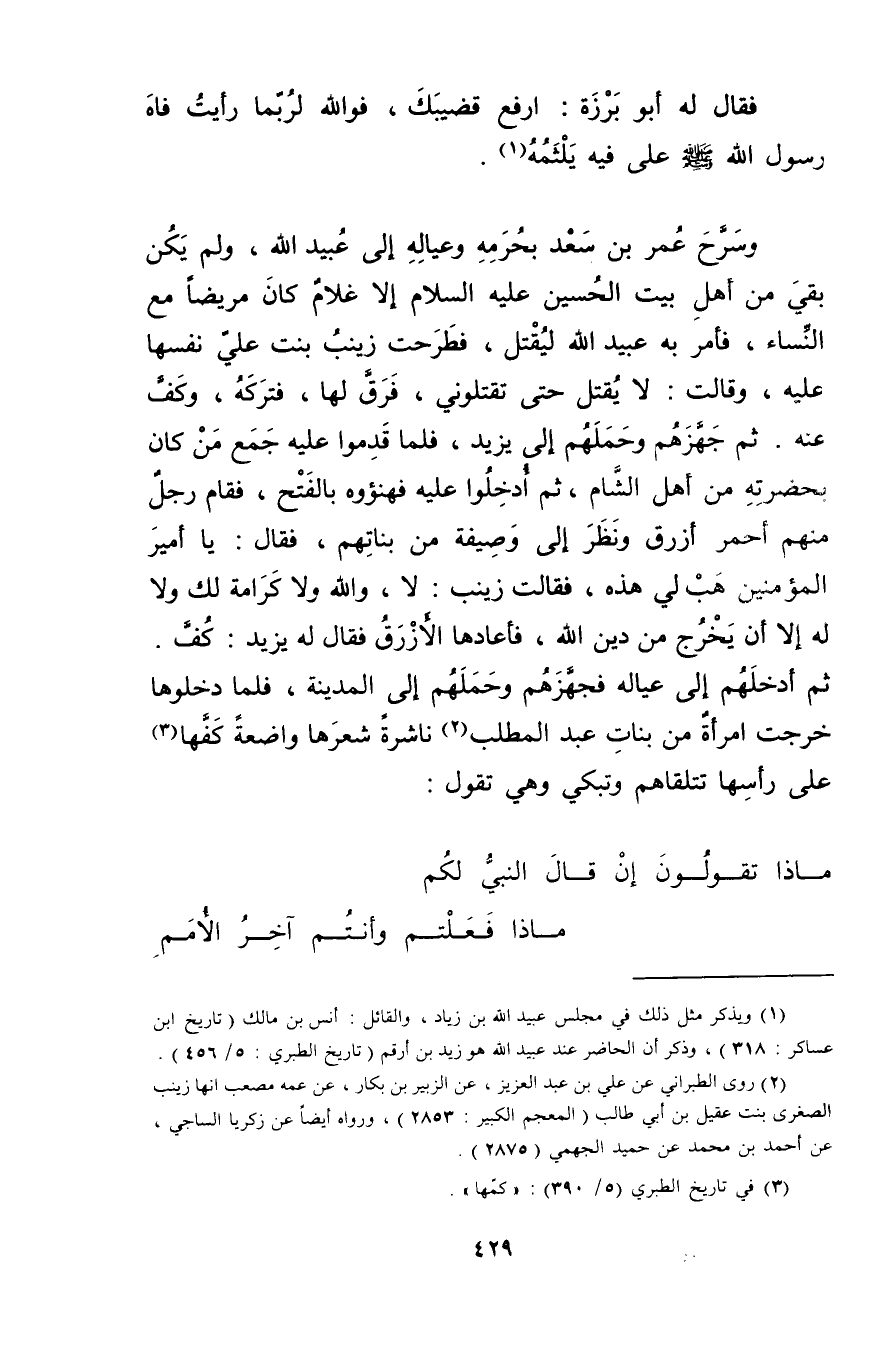 فقال له أبو بَرْزَة : ارفع قضيبَكَ ، فوالله لرُبّما رأيتُ فاهَ
رسول الله ﷺ على فيه يَلْثَمُهُ(١) .
وسَرَّحَ عُمر بن سَعْد بحُرَمِهِ وعيالِهِ إلى عُبيد الله ، ولم يَكُن
بقيَ من أهلِ بيت الحُسين عليه السلام إلا غلامٌ كانَ مريضاً مع
النِّساء ، فأمر به عبيد الله ليُقْتل ، فطَرَحت زينبُ بنت عليّ نفسها
عليه ، وقالت : لا يُقتل حتى تقتلوني ، فَرَقَّ لها ، فتركَهُ ، وكَفَّ
عنه . ثم جَهَّزَهُم وحَمَلَهُم إلى يزيد ، فلما قَدِموا عليه جَمَع مَنْ كان
بحضرتِهِ من أهل الشَّام ، ثم أُدخِلُوا عليه فهنؤوه بالفَتْح ، فقام رجلٌ
منهم أحمر أزرق ونَظَرَ إلى وَصِيفة من بناتِهم ، فقال : يا أميرَ
المؤمنين هَبْ لي هذه ، فقالت زينب : لا ، والله ولا كَرَامة لك ولا
له إلا أن يَخْرُج من دين الله ، فأعادها الأَزْرَقُ فقال له يزيد : كُفَّ .
ثم أدخلَهُم إلى عياله فجهَّزَهُم وحَمَلَهُم إلى المدينة ، فلما دخلوها
خرجت امرأةٌ من بناتِ عبد المطلب(٢) ناشرةً شعرَها واضعةً كَفَّها(٣)
على رأسِها تتلقاهم وتبكي وهي تقول :
مـاذا تقـولُـونَ إنْ قـالَ النبيُّ لكُم
مـاذا فَعَلْتـم وأنتُـم آخِـرُ الأُمَـمِ
(١) ويذكر مثل ذلك في مجلس عبيد الله بن زياد ، والقائل : أنس بن مالك ( تاريخ ابن
عساكر : ٣١٨ ) ، وذكر أن الحاضر عند عبيد الله هو زيد بن أرقم ( تاريخ الطبري : ٥/ ٤٥٦ ) .
(٢) روى الطبراني عن علي بن عبد العزيز ، عن الزبير بن بكار ، عن عمه مصعب انها زينب
الصغرى بنت عقيل بن أبي طالب ( المعجم الكبير : ٢٨٥٣ ) ، ورواه أيضاً عن زكريا الساجي ،
عن أحمد بن محمد عن حميد الجهمي ( ٢٨٧٥ ) .
(٣) في تاريخ الطبري (٥/ ٣٩٠) : « كمّها » .
٤٢٩